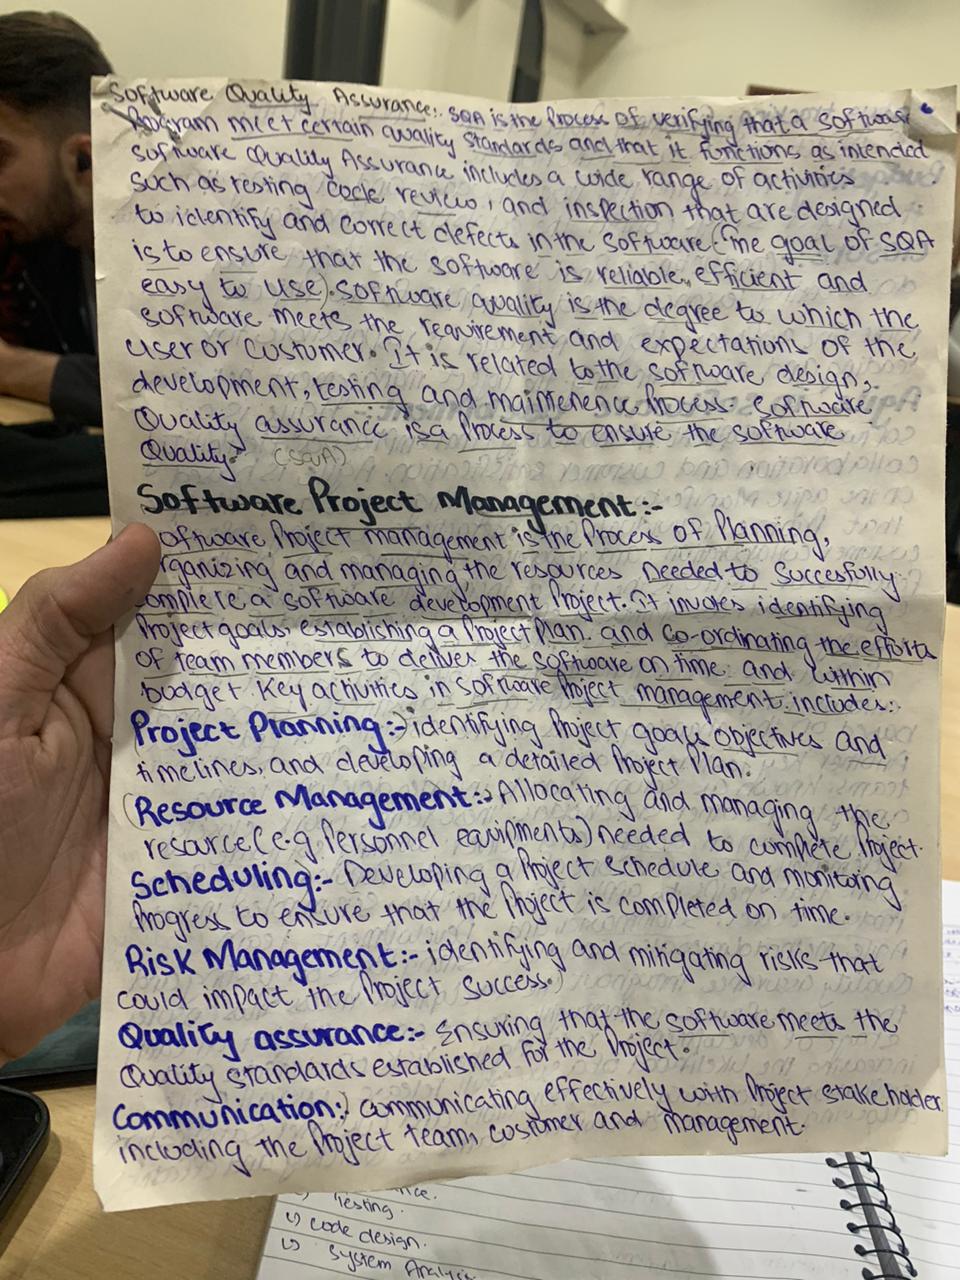 Software Quality Assurance:. SQA is the Process of verifying that a software
Program meet certain quality standards and that it functions as intended
Software Quality Assurance includes a wide range of activities
such as testing code review, and inspection that are designed
to identify and correct defects in the software (The goal of SQA
is to ensure that the software is reliable, efficient and
easy to use). Software quality is the degree to which the
software meets the requirement and expectations of the
user or customer. It is related to the software design,
development, testing and maintenence Process. Software
Quality assurance is a Process to ensure the software
Quality. (SQA)
Software Project Management:-
oftware Project management is the Process of Planning,
rganizing and managing the resources needed to succesfully
omplete a software development Project. It invoves identifying
Project goals, establishing a Project Plan. and Co-ordinating the efforts
of team members to deliver the software on time and within
budget Key activities in software Project management includes:
Project Planning:- identifying Project goals objectives and
timelines, and developing a detailed Project Plan.
(Resource Management:- Allocating and managing the
resource (e.g. Personnel equipments) needed to complete Project.
Scheduling:- Developing a Project schedule and monitoring
Progress to ensure that the Project is completed on time.
Risk Management:- identifying and mitigating risks that
could impact the Project success.)
Quality assurance:- Ensuring that the software meets the
Quality standards established for the Project.
Communication:) communicating effectively with Project stakeholder
including the Project team, customer and management.
nce.
Testing.
Code design.
System Analysis